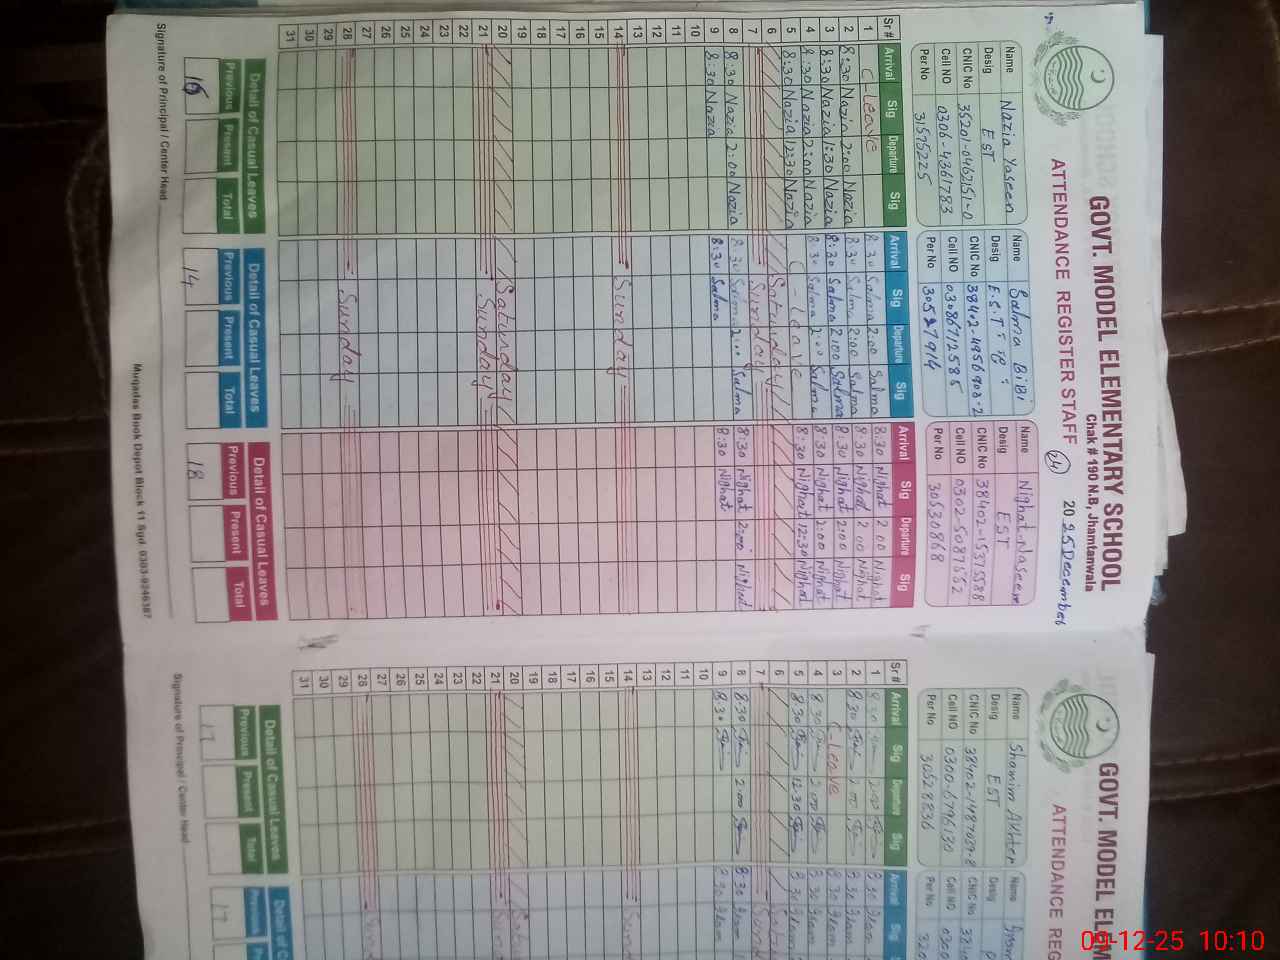 GOVT. MODEL ELEMENTARY SCHOOL
Chak # 190 N.B, Jhamtanwala
ATTENDANCE REGISTER STAFF (24) 2025 December
Name Nazia Yaseen
Desig EST
CNIC No 35201-0462151-0
Cell NO 0306-4361783
Per No 31595225
Name Salma BiBi
Desig E.S.T
CNIC No 38402-4956908-2
Cell NO 03086712585
Per No 30527914
Name Nighat Naseem
Desig EST
CNIC No 38402-1537558-8
Cell NO 0302-5087552
Per No 30530868
Sr # Arrival Sig Departure Sig Arrival Sig Departure Sig Arrival Sig Departure Sig
1 C-Leave 8:30 Salma 2:00 Salma 8:30 Nighat 2:00 Nighat
2 8:30 Nazia 2:00 Nazia 8:30 Salma 2:00 Salma 8:30 Nighat 2:00 Nighat
3 8:30 Nazia 1:30 Nazia 8:30 Salma 2:00 Salma 8:30 Nighat 2:00 Nighat
4 8:30 Nazia 2:00 Nazia 8:30 Salma 2:00 Salma 8:30 Nighat 2:00 Nighat
5 8:30 Nazia 12:30 Nazia C-Leave 8:30 Nighat 12:30 Nighat
6 Saturday
7 Sunday
8 8:30 Nazia 2:00 Nazia 8:30 Salma 2:00 Salma 8:30 Nighat 2:00 Nighat
9 8:30 Nazia 8:30 Salma 8:30 Nighat
10
11
12
13
14 Sunday
15
16
17
18
19
20 Saturday
21 Sunday
22
23
24
25
26
27
28 Sunday
29
30
31
Detail of Casual Leaves Detail of Casual Leaves Detail of Casual Leaves
Previous Present Total Previous Present Total Previous Present Total
14 18
Signature of Principal / Center Head
Muqadas Book Depot Block 11 Sgd. 0303-9246387
GOVT. MODEL ELEM
ATTENDANCE REG
Name Shamim Akhter
Desig EST
CNIC No
Cell NO 0300-6796130
Per No 30528836
Name
Desig
CNIC No
Cell NO 0300
Per No
Sr # Arrival Sig Departure Sig Arrival
1 8:30 2:00 8:30
2 8:30 2:00 8:30
3 C-Leave 8:30
4 8:30 2:00 8:30
5 8:30 12:30 8:30
6
7
8 8:30 2:00 8:30
9 8:30 8:30
10
11
12
13
14
15
16
17
18
19
20
21
22
23
24
25
26
27
28
29
30
31
Detail of Casual Leaves Detail of C
Previous Present Total Previous
17 17
Signature of Principal / Center Head
09-12-25 10:10